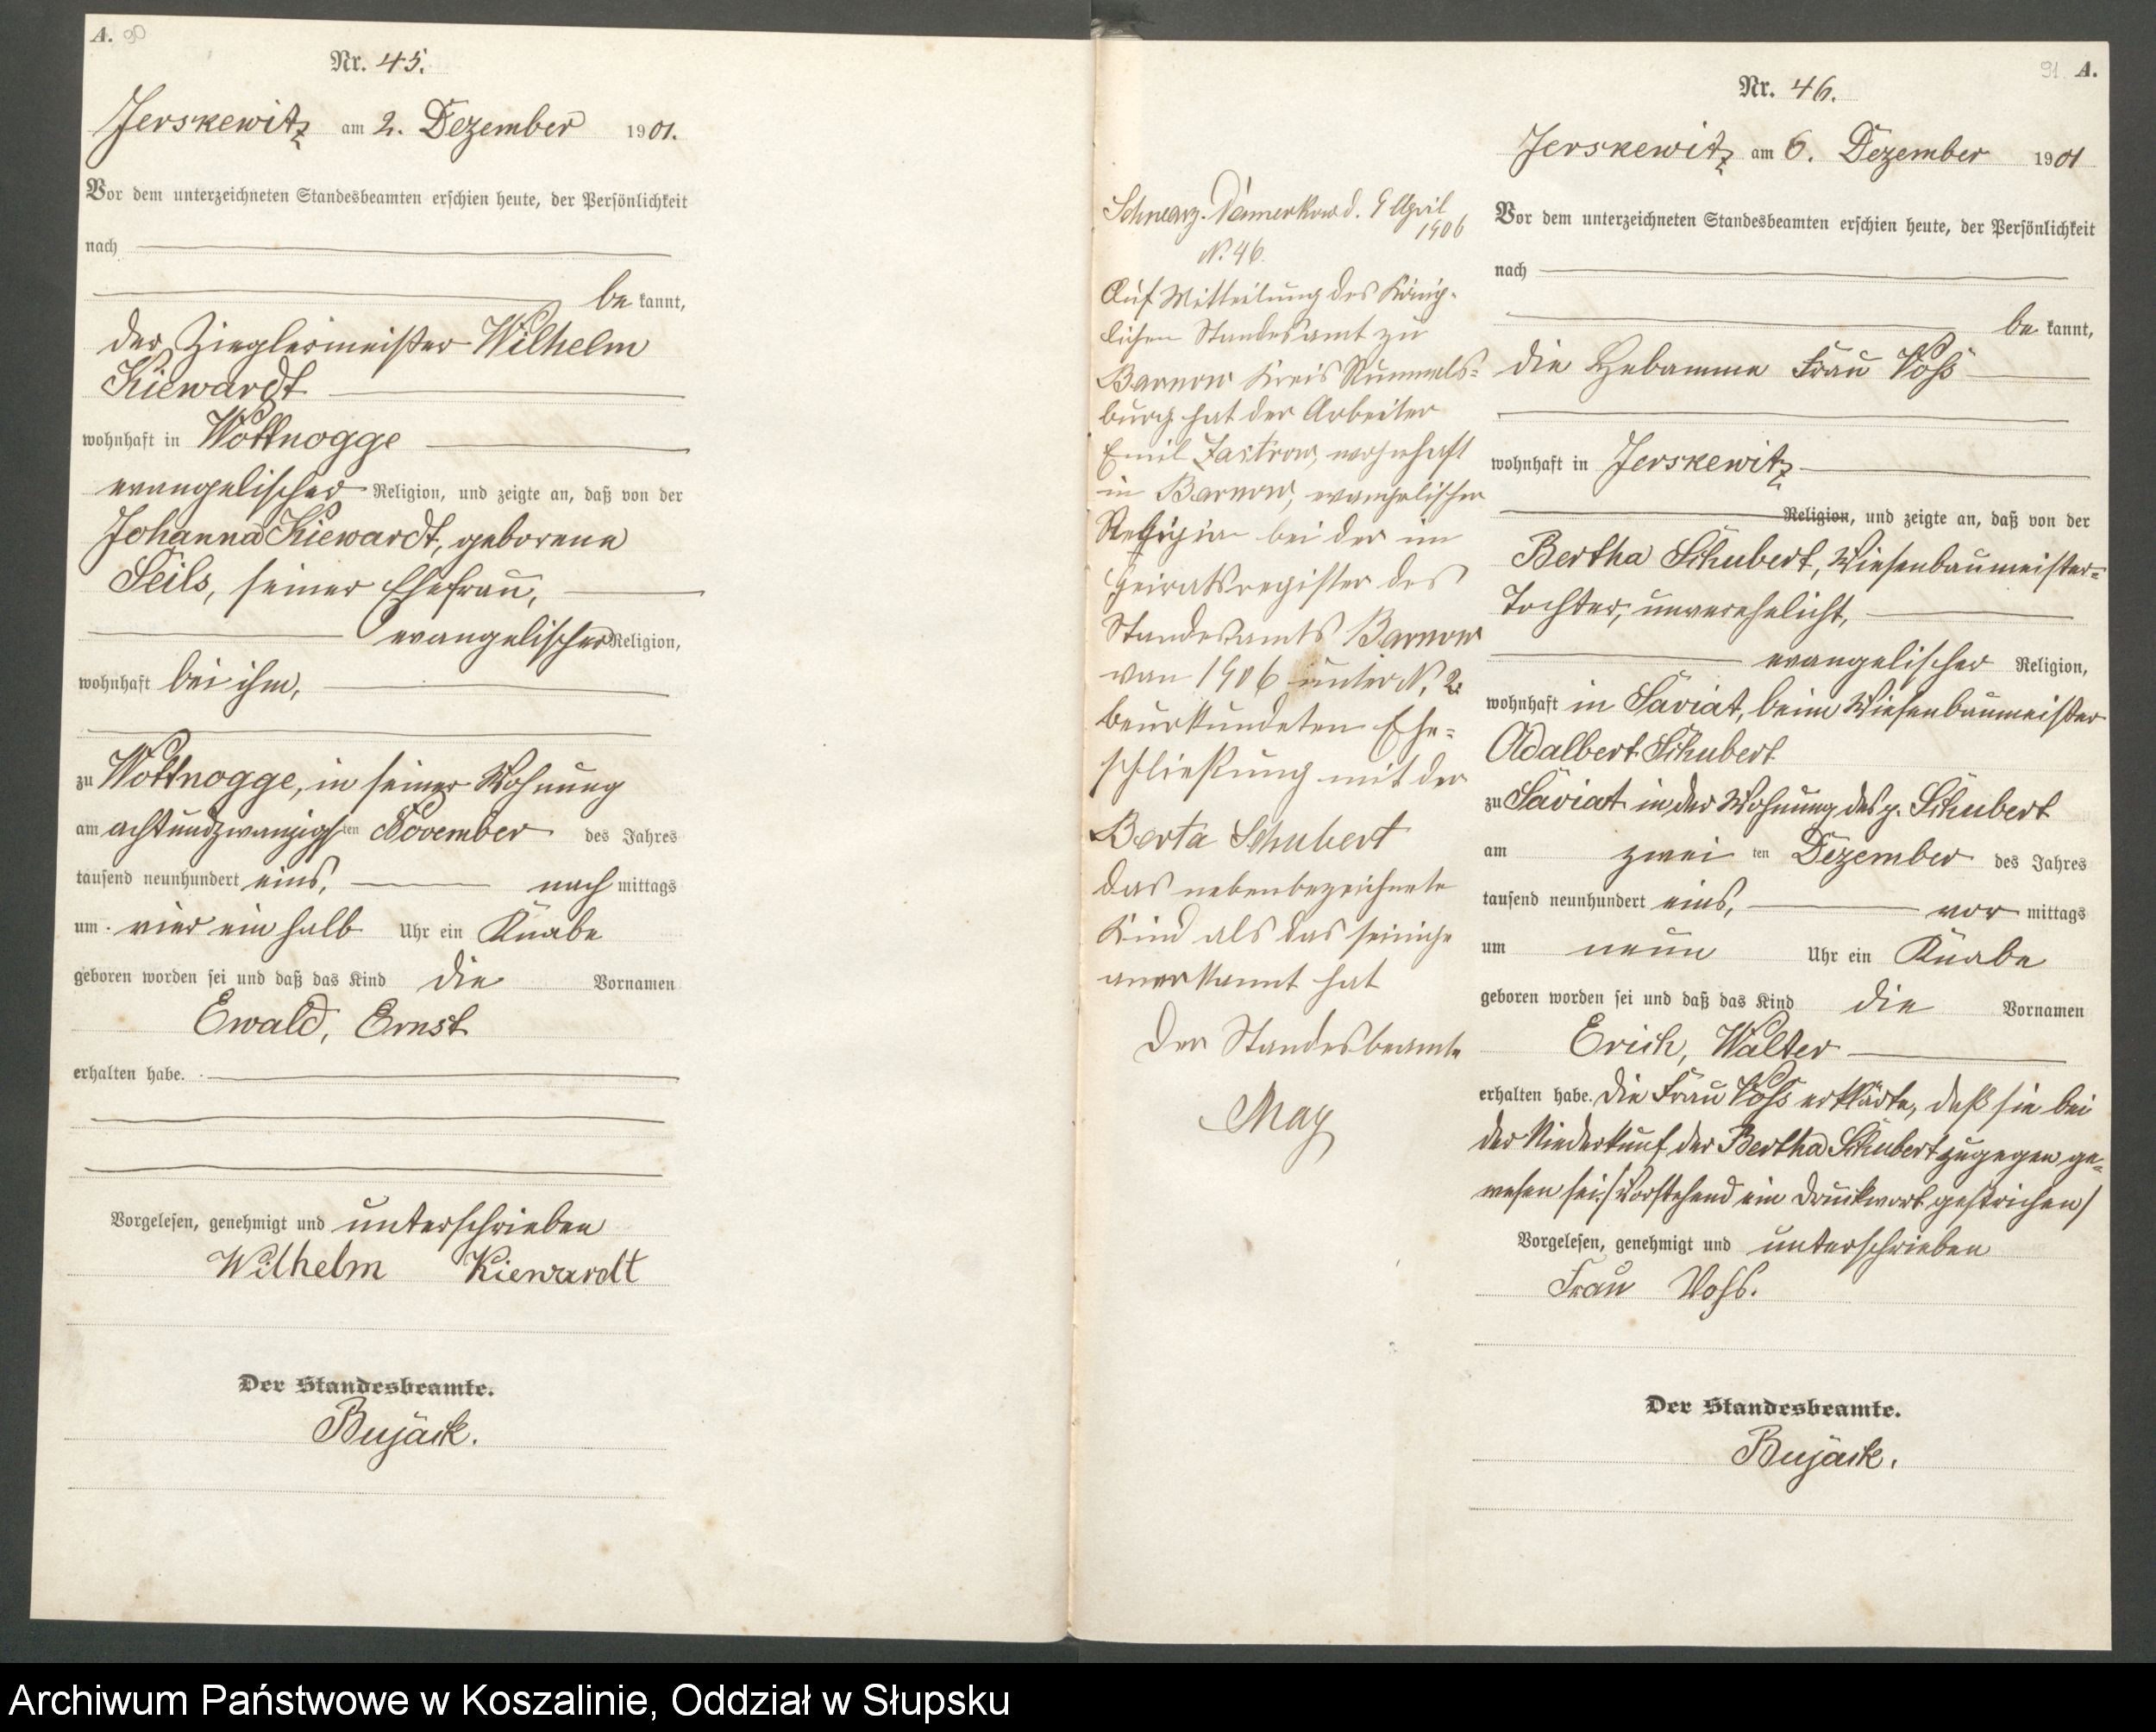 A. 90
Nr. 45.
Jerskewitz am 2. Dezember 1901.
Vor dem unterzeichneten Standesbeamten erschien heute, der Persönlichkeit
nach
be kannt,
der Zieglermeister Wilhelm
Kiewardt
wohnhaft in Wottnogge
evangelischer Religion, und zeigte an, daß von der
Johanna Kiewardt, geborene
Seils, seiner Ehefrau,
evangelischer Religion,
wohnhaft bei ihm,
zu Wottnogge, in seiner Wohnung
am achtundzwanzigsten November des Jahres
tausend neunhundert eins, nach mittags
um vier ein halb Uhr ein Knabe
geboren worden sei und daß das Kind die Vornamen
Ewald, Ernst
erhalten habe.
Vorgelesen, genehmigt und unterschrieben
Wilhelm Kiewardt
Der Standesbeamte.
Bujack.
Schwarz-Damerkow d. 9 April
1906
N. 46.
Auf Mitteilung des König-
lichen Standesamt zu
Barnow Kreis Rummels-
burg hat der Arbeiter
Emil Zastrow, wohnhaft
in Barnow, evangelischer
Religion bei der im
Heiratsregister des
Standesamts Barnow
von 1906 unter N. 2
beurkundeten Ehe-
schließung mit der
Berta Schubert
das nebenbezeichnete
Kind als das seinige
anerkannt hat
Der Standesbeamte
May
91 A.
Nr. 46.
Jerskewitz am 6. Dezember 1901
Vor dem unterzeichneten Standesbeamten erschien heute, der Persönlichkeit
nach
be kannt,
die Hebamme Frau Voß
wohnhaft in Jerskewitz
Religion, und zeigte an, daß von der
Bertha Schubert, Wiesenbaumeister-
Tochter, unverehelicht,
evangelischer Religion,
wohnhaft in Saviat, beim Wiesenbaumeister
Adalbert Schubert
zu Saviat in der Wohnung des p. Schubert
am zwei ten Dezember des Jahres
tausend neunhundert eins, vor mittags
um neun Uhr ein Knabe
geboren worden sei und daß das Kind die Vornamen
Erich, Walter
erhalten habe. Die Frau Voß erklärte, daß sie bei
der Niederkunft der Bertha Schubert zugegen ge-
wesen sei. /Vorstehend ein Druckwort gestrichen/
Vorgelesen, genehmigt und unterschrieben
Frau Voß.
Der Standesbeamte.
Bujack.
Archiwum Państwowe w Koszalinie, Oddział w Słupsku